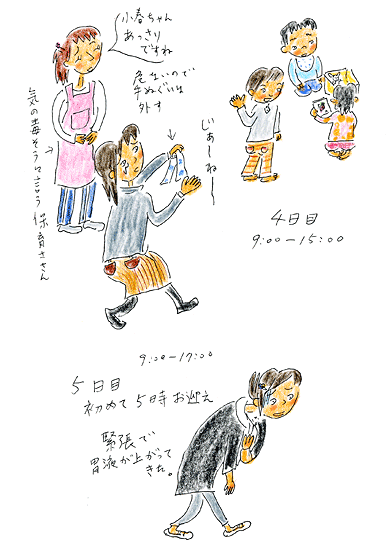 小春ちゃん
あっさり
ですね
危ないので
手ぬぐいは
外す
じぁ〜ね〜
気の毒そうに言う保育ささん
4日目
9:00-15:00
9:00-17:00
5日目
初めて5時お迎え
緊張で
胃液が上がって
きた。